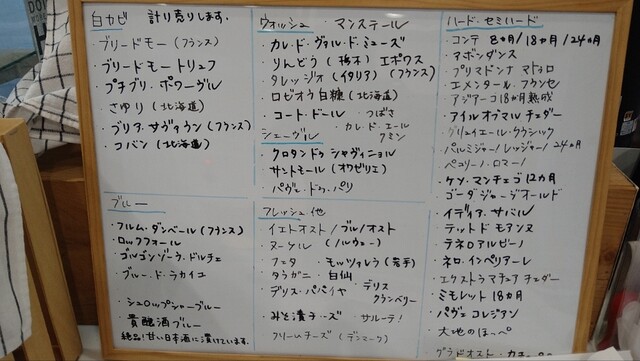 白カビ 計り売りします.
・ブリードモー(フランス)
・ブリードモートリュフ
・プチブリ・ポワーヴル
・さゆり(北海道)
・ブリア・サヴァラン(フランス)
・コバン(北海道)
ブルー
・フルム・ダンベール(フランス)
・ロックフォール
・ゴルゴンゾーラ・ドルチェ
・ブルー・ド・ラカイユ
・シュロップシャーブルー
・貴醸酒ブルー
絶品!甘い日本酒に漬けています.
ウォッシュ ・マンステール
・カレ・ド・ヴァル・ド・ミューズ
・りんどう(栃木) エポワス
・タレッジオ(イタリア) (フランス)
・ロゼオウ白糠(北海道)
・コート・ドール ・つばさ
シェーヴル ・カレ・ド・エール
クミン
・クロタンドゥシャヴィニョル
・サントモール(オワゼリエ)
・パヴェ・ドゥ・パリ
フレッシュ・他
・イエトオスト/ブルノオスト
・ヌーケル (ノルウェー)
・フェタ ・モッツァレラ(岩手)
・タラガニ ・白仙
・デリス・パパイヤ ・デリス
クランベリー
・みそ漬チーズ サルーテ!
・クリームチーズ(デンマーク)
ハード・セミハード
・コンテ 8ヵ月/18ヵ月/24ヵ月
・アボンダンス
・プリマドンナ マトゥロ
・エメンタール・フランセ
・アジアーゴ18か月熟成
・アイルオブマル チェダー
・グリュイエール・クラシック
・パルミジャーノ・レッジャーノ24ヵ月
・ペコリーノ・ロマーノ
・ケソ・マンチェゴ12ヵ月
・ゴーダ ジャージーオールド
・イディアサバル
・テットドモアンヌ
・テネロアルピーノ
・ネロ・インペリアーレ
・エクストラマチュアチェダー
・ミモレット 18ヵ月
・パヴェ コレジアン
・大地のほっぺ
・グラドオスト・カチョ